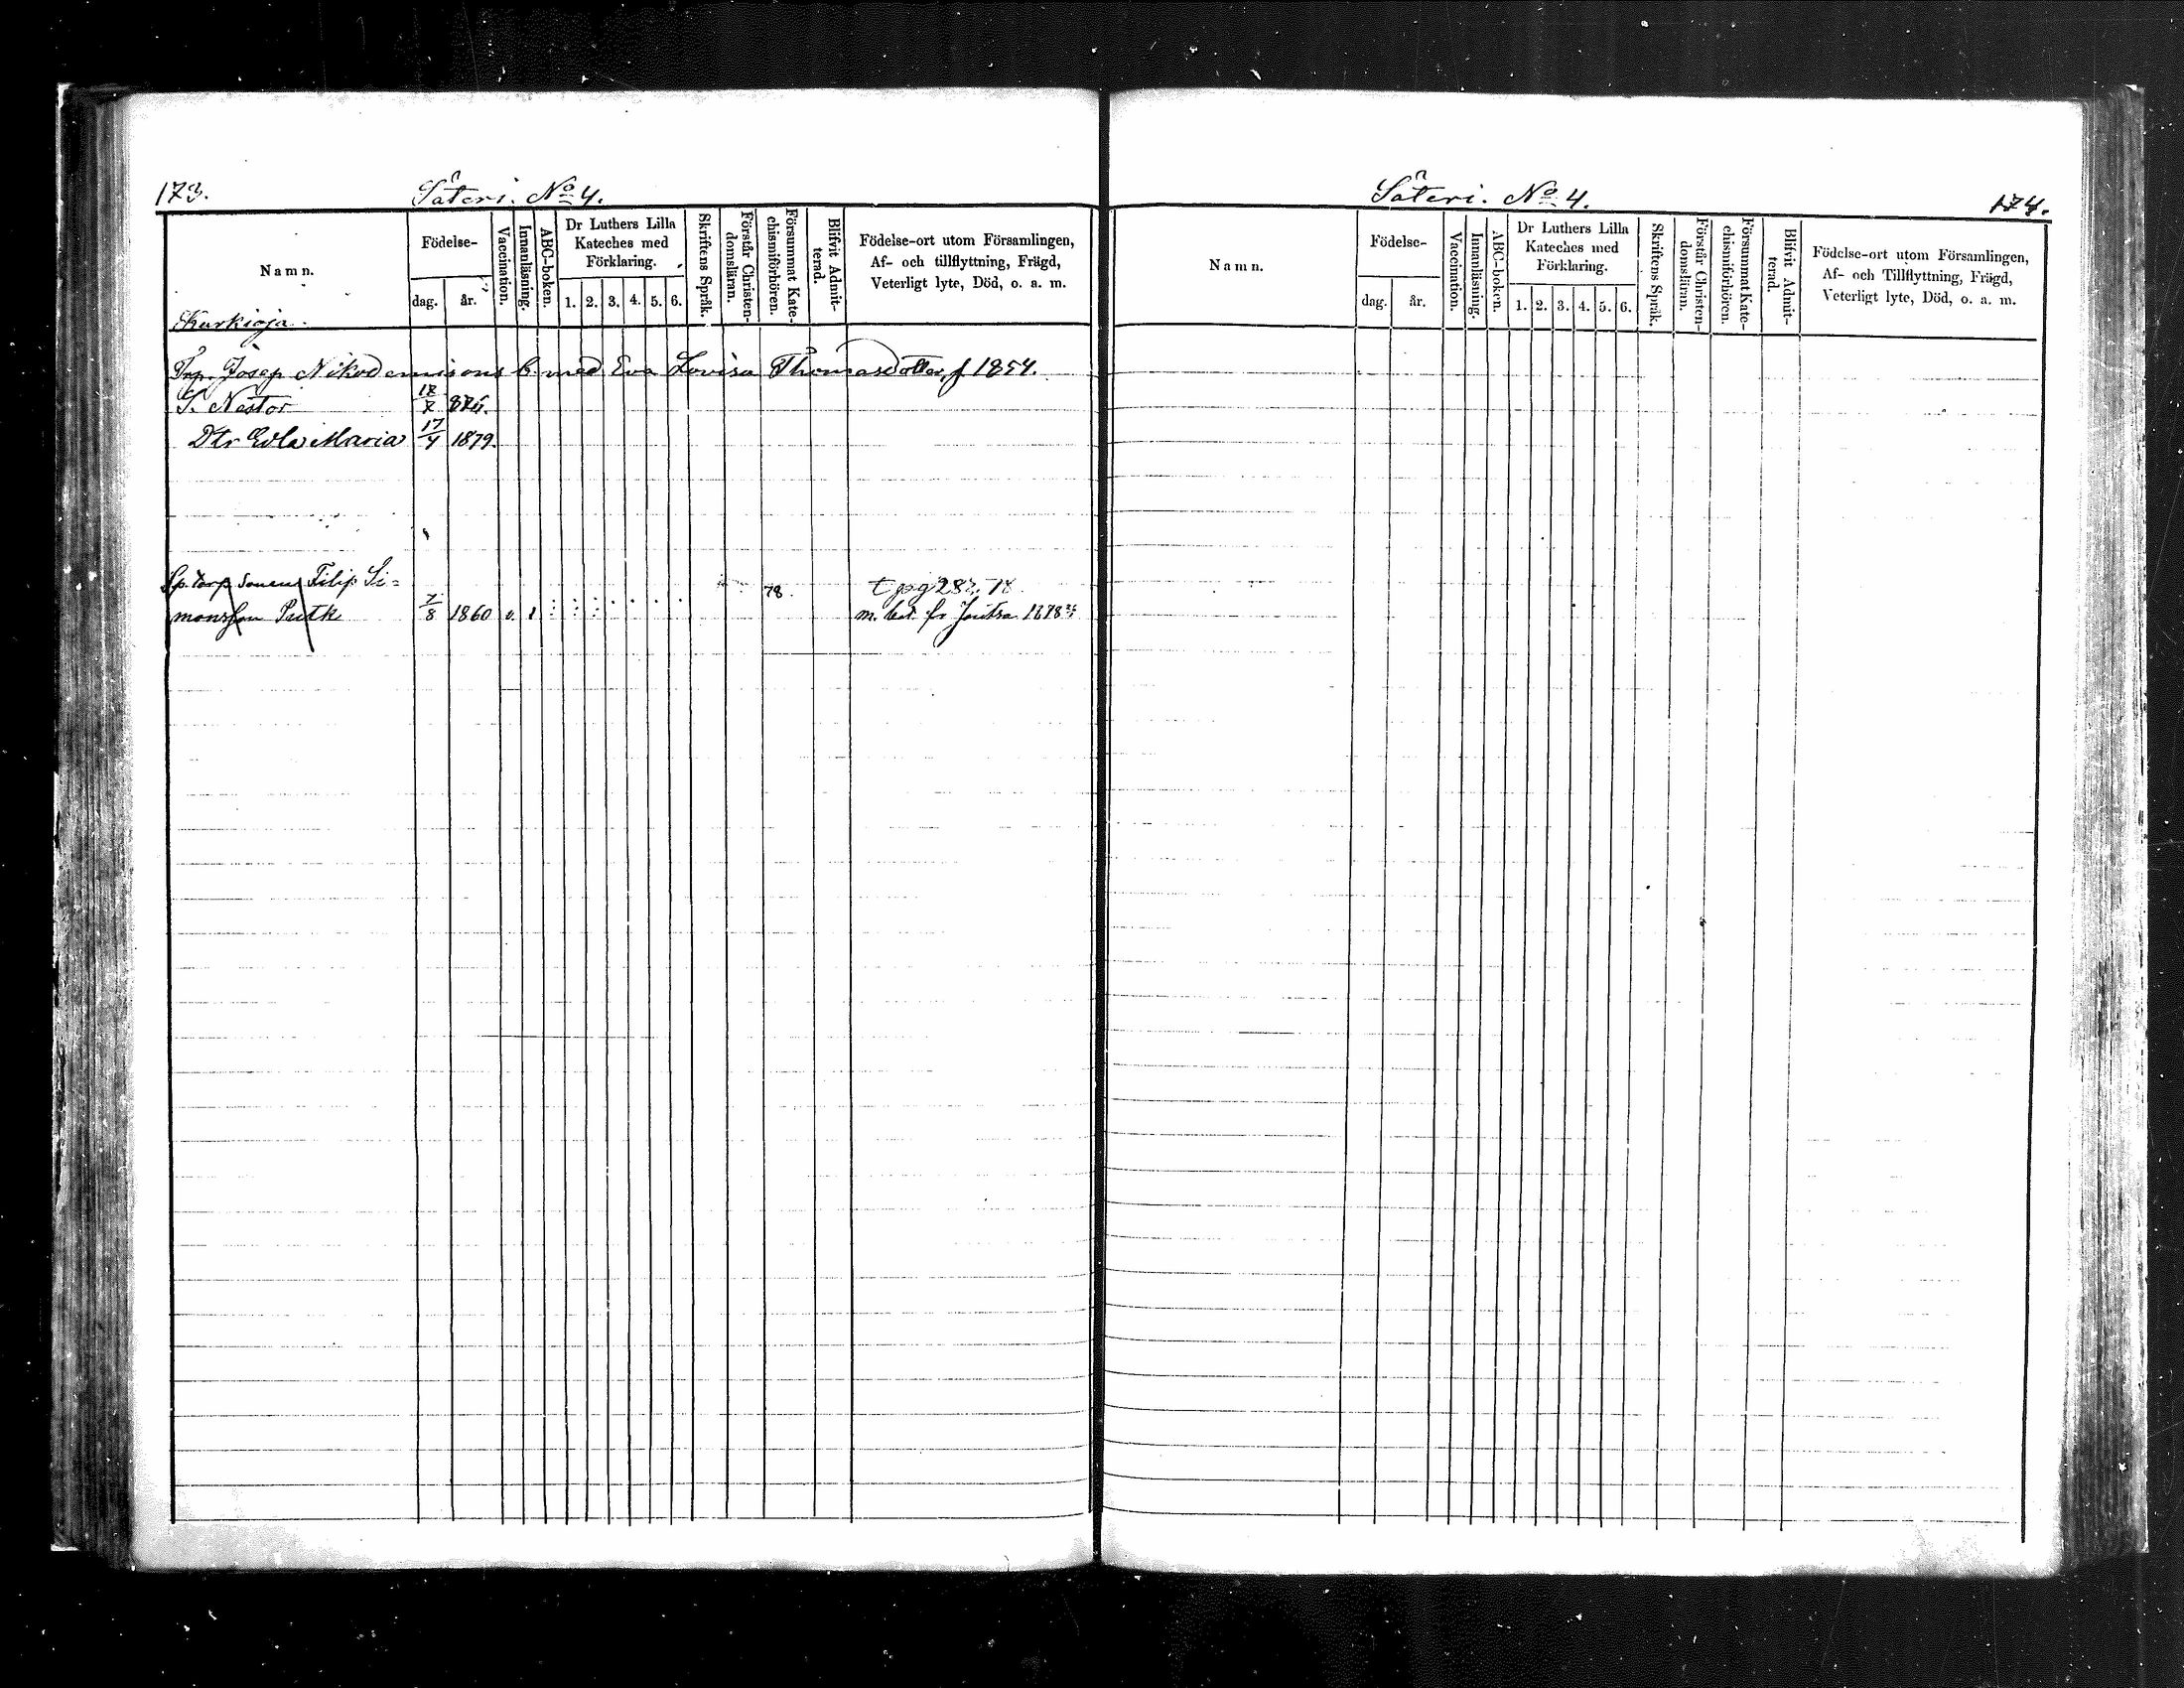 173.
Såteri. No 4.
Namn.
Födelse-
dag.
år.
Vaccination.
Innanläsning.
ABC-boken.
Dr Luthers Lilla
Kateches med
Förklaring.
1. 2. 3. 4. 5. 6.
Skriftens Språk.
Förstår Christen-
domsläran.
Försummat Kate-
chismiförhören.
Blifvit Admit-
terad.
Födelse-ort utom Församlingen,
Af- och tillflyttning, Frägd,
Veterligt lyte, Död, o. a. m.
Kurkioja.
Trp. Josep Nikodemisons b. med Eva Lovisa Thomasdotter, f 1854.
S. Nestor
Dtr Edla Maria 17/4 1879.
Sp. torp. sonen Filip Si=
78.
monsson 7/8 1860 v. 1
m. bet. fr Joutsa 1878
174.
Såteri. No 4.
Namn.
Födelse-
dag.
år.
Vaccination.
Innanläsning.
ABC-boken.
Dr Luthers Lilla
Kateches med
Förklaring.
1. 2. 3. 4. 5. 6.
Skriftens Språk.
Förstår Christen-
domsläran.
Försummat Kate-
chismiförhören.
Blifvit Admit-
terad.
Födelse-ort utom Församlingen,
Af- och Tillflyttning, Frägd,
Veterligt lyte, Död, o. a. m.